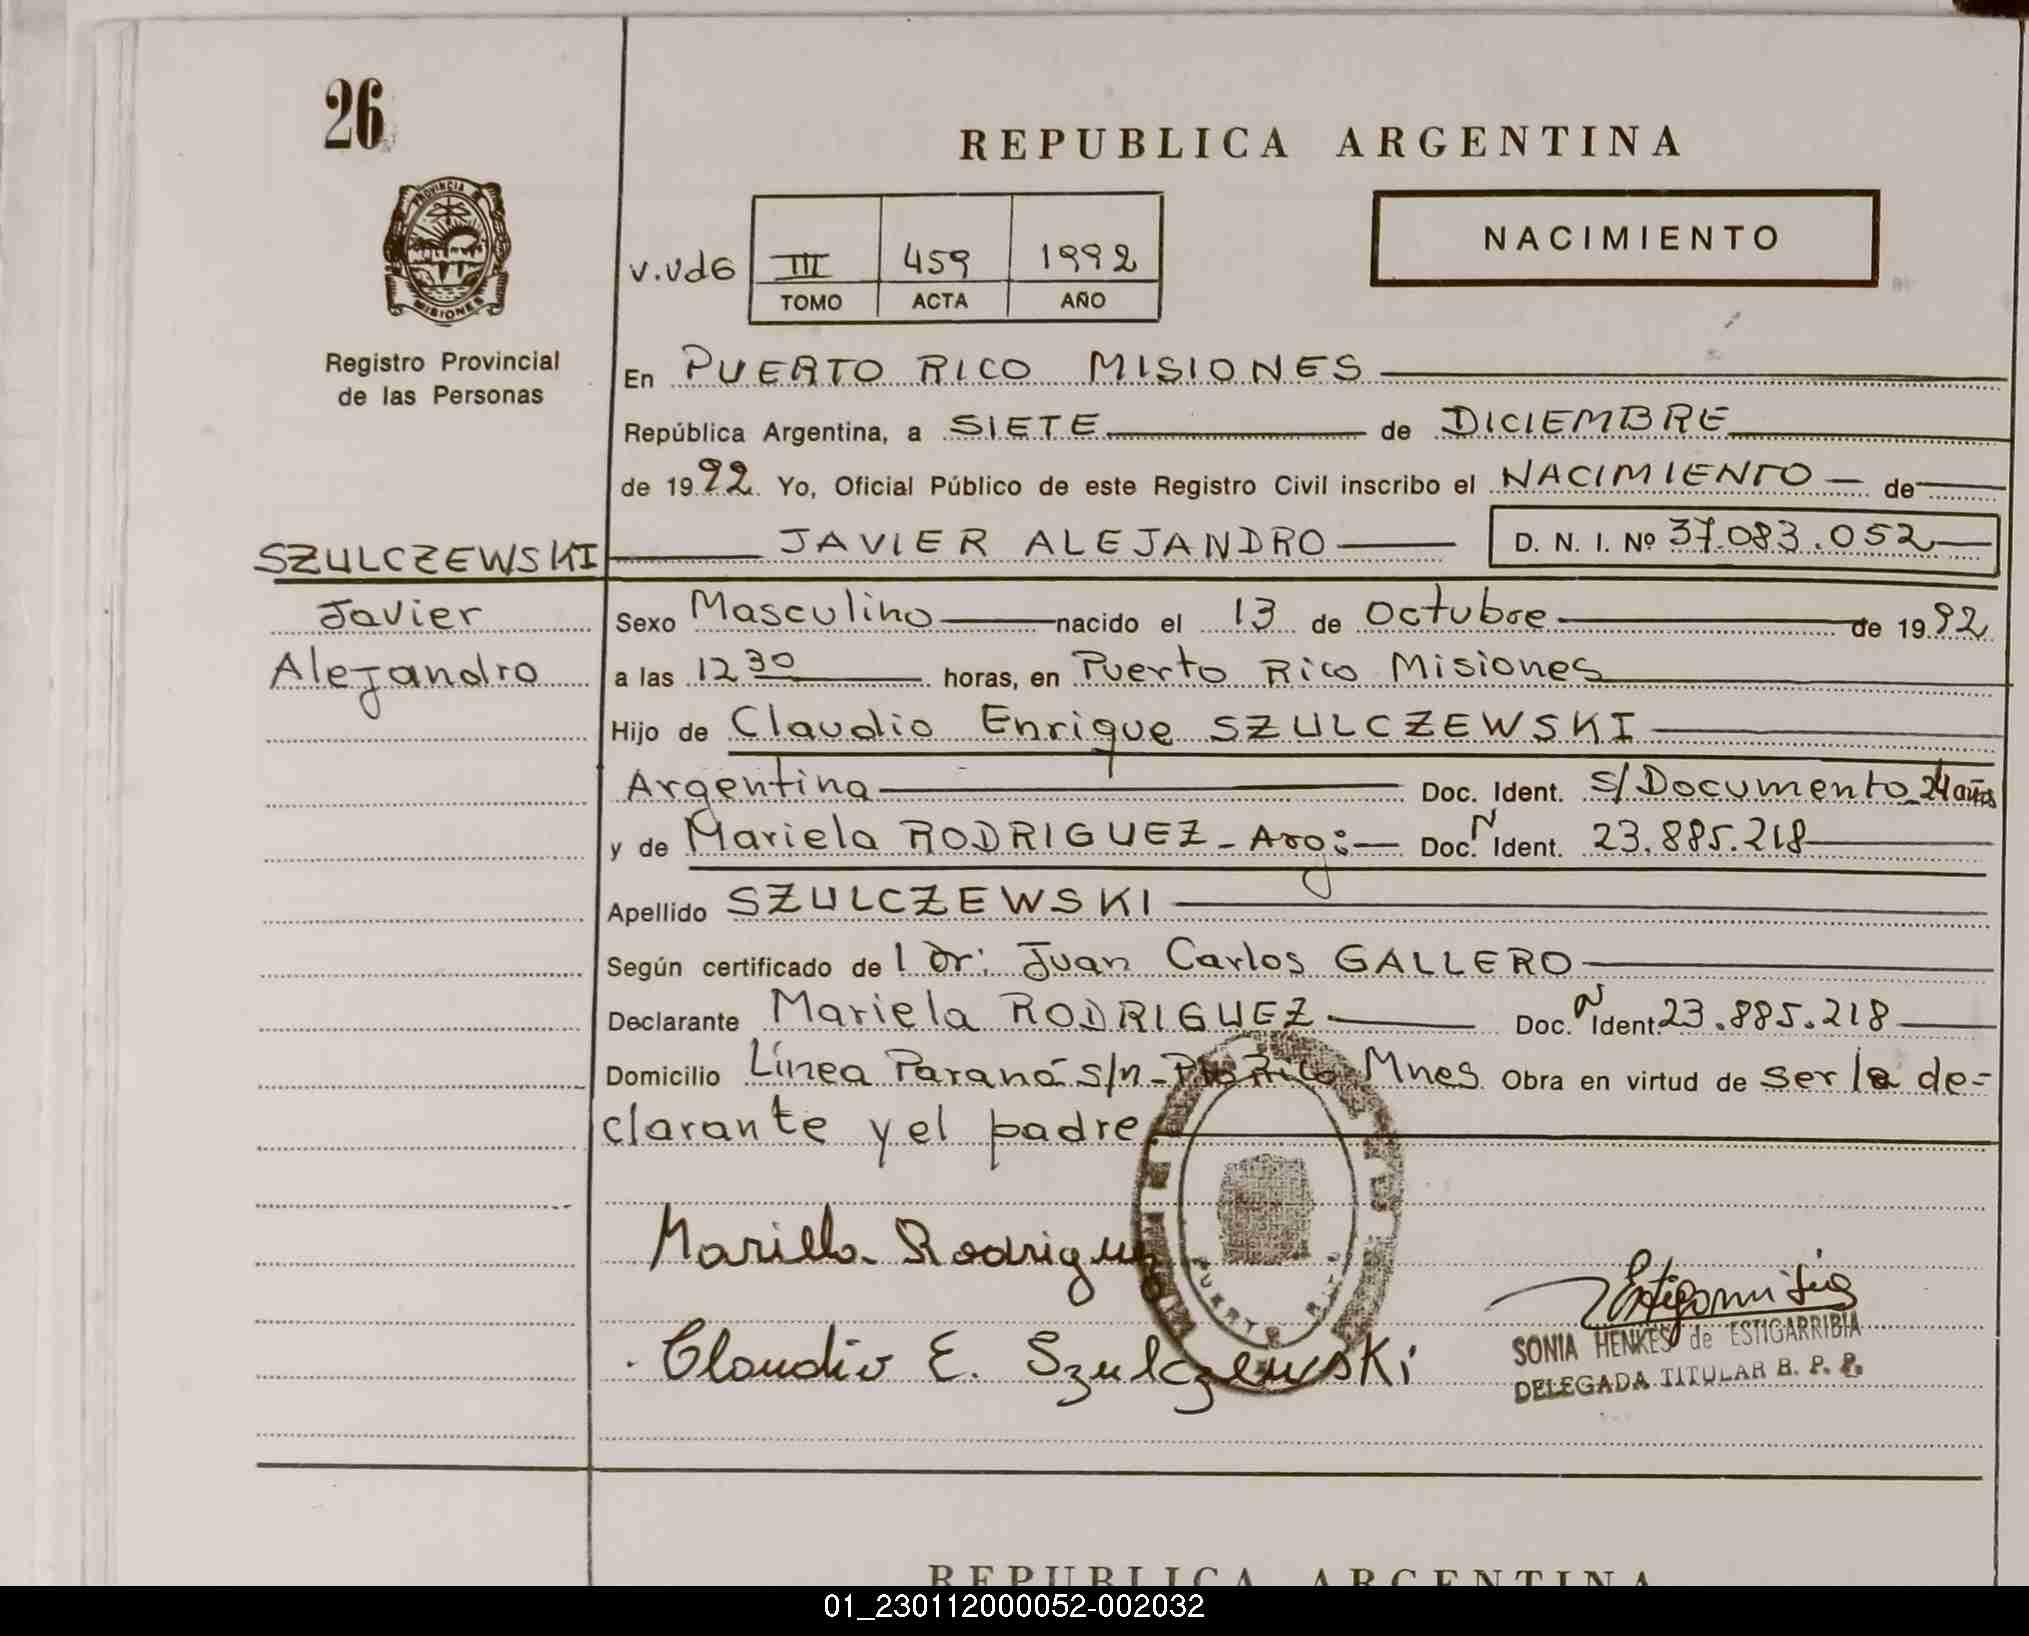 26
REPUBLICA ARGENTINA
PROVINCIA DE
MISIONES
NACIMIENTO
V.Vd6 III 459 1992
TOMO ACTA AÑO
Registro Provincial
de las Personas
En PUERTO RICO MISIONES
República Argentina, a SIETE de DICIEMBRE
de 1992 Yo, Oficial Público de este Registro Civil inscribo el NACIMIENTO de
SZULCZEWSKI JAVIER ALEJANDRO D. N. I. Nº 37.083.052
Javier Sexo Masculino nacido el 13 de Octubre de 1992
Alejandro a las 12 30 horas, en Puerto Rico Misiones
Hijo de Claudio Enrique SZULCZEWSKI
Argentina Doc. Ident. S/Documento 24 años
y de Mariela RODRIGUEZ - Arg: Doc. N Ident. 23.885.218
Apellido SZULCZEWSKI
Según certificado de l Dr: Juan Carlos GALLERO
Declarante Mariela RODRIGUEZ Doc. N Ident. 23.885.218
Domicilio Línea Paraná s/n - Pto Rico Mnes Obra en virtud de ser la de=
clarante y el padre
Mariela Rodriguez
PUERTO RICO
Claudio E. Szulczewski
SONIA HENKES de ESTIGARRIBIA
DELEGADA TITULAR B. P. P.
REPUBLICA ARGENTINA
01_230112000052-002032